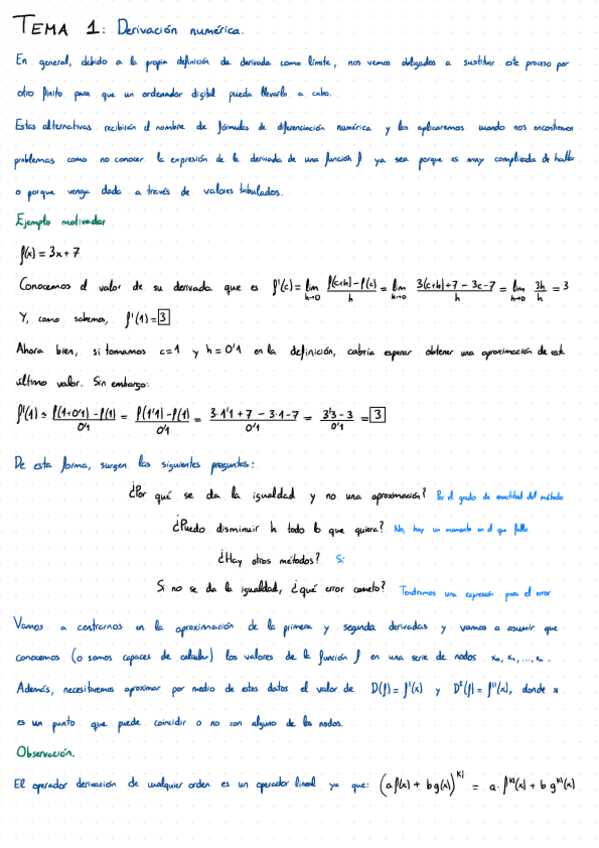 TEMA 1: Derivación numérica.
En general, debido a la propia definición de derivada como límite, nos vemos obligados a sustituir este proceso por
otro finito para que un ordenador digital pueda llevarlo a cabo.
Estas alternativas recibirán el nombre de fórmulas de diferenciación numérica y las aplicaremos cuando nos encontremos
problemas como no conocer la expresión de la derivada de una función f ya sea porque es muy complicada de hallar
o porque venga dada a través de valores tabulados.
Ejemplo motivador
f(x) = 3x + 7
Conocemos el valor de su derivada que es f'(c) = lim h→0 (f(c+h) - f(c))/h = lim h→0 (3(c+h)+7-3c-7)/h = lim h→0 3h/h = 3
Y, como sabemos, f'(1) = 3
Ahora bien, si tomamos c=1 y h=0'1 en la definición, cabría esperar obtener una aproximación de este
último valor. Sin embargo:
f'(1) ≃ (f(1+0'1) - f(1))/0'1 = (f(1'1) - f(1))/0'1 = (3·1'1 + 7 - 3·1 - 7)/0'1 = (3'3 - 3)/0'1 = 3
De esta forma, surgen las siguientes preguntas:
¿Por qué se da la igualdad y no una aproximación? Por el grado de exactitud del método
¿Puedo disminuir h todo lo que quiera? No, hay un momento en el que falla
¿Hay otros métodos? Sí
Si no se da la igualdad, ¿qué error cometo? Tendremos una expresión para el error
Vamos a centrarnos en la aproximación de la primera y segunda derivadas y vamos a asumir que
conocemos (o somos capaces de calcular) los valores de la función f en una serie de nodos x₀, x₁, ..., xₙ.
Además, necesitaremos aproximar por medio de estos datos el valor de D(f) = f'(x) y D²(f) = f''(x), donde x
es un punto que puede coincidir o no con alguno de los nodos.
Observación.
El operador derivación de cualquier orden es un operador lineal ya que: (a f(x) + b g(x))^(k) = a · f^(k)(x) + b g^(k)(x)